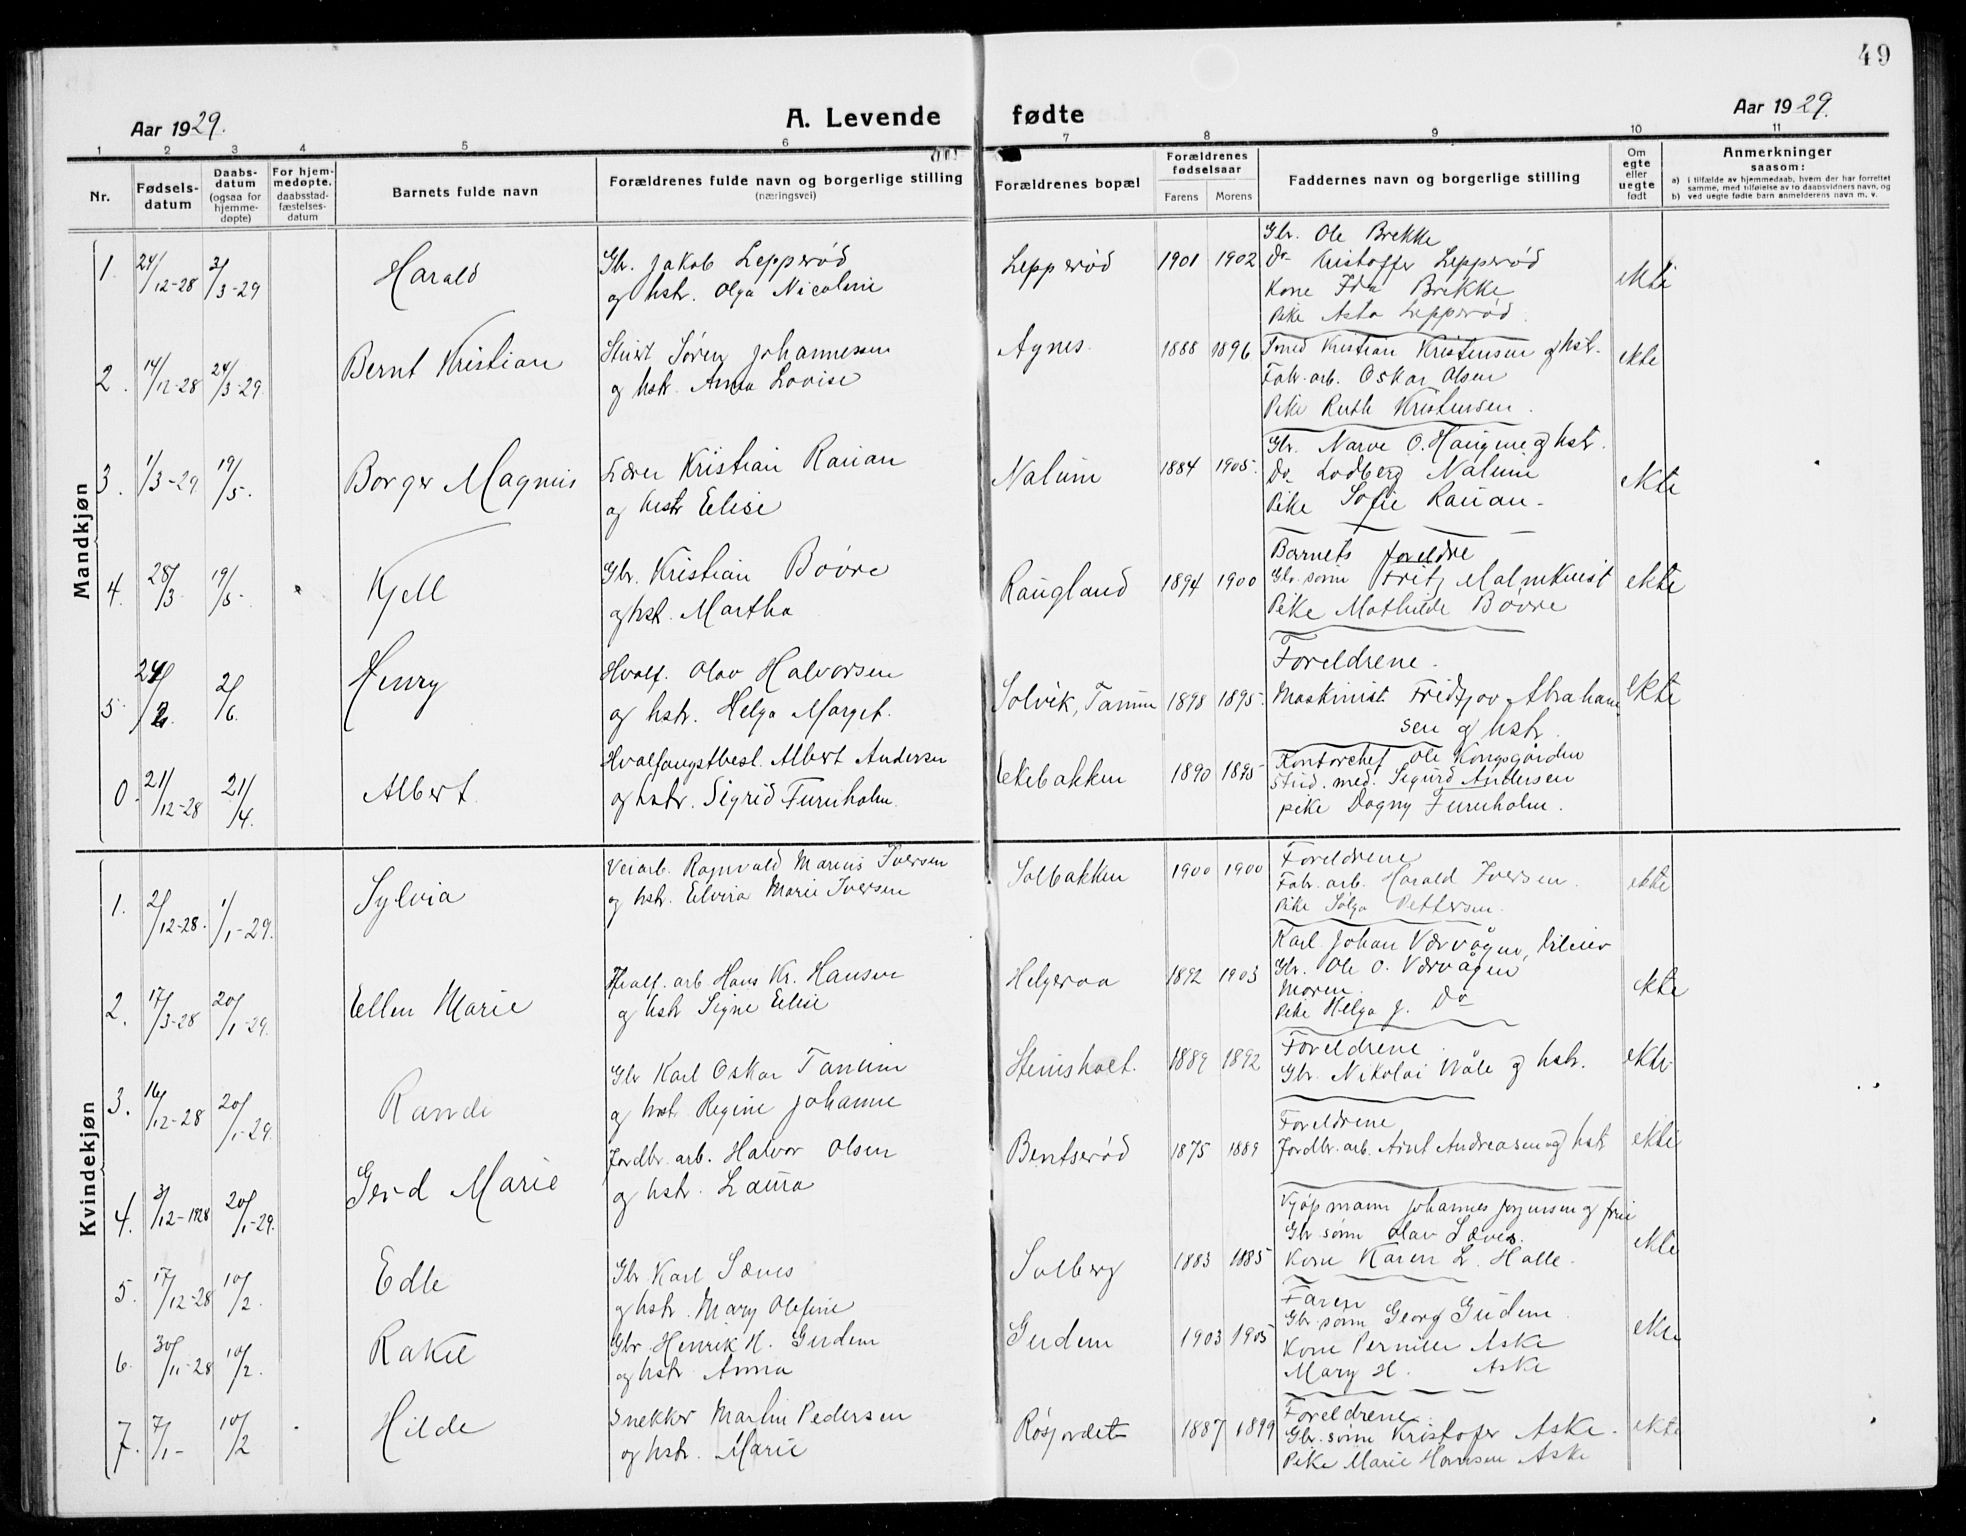 49
Aar 1929.
A. Levende fødte
Aar 1929.
1 2 3 4 5 6 7 8 9 10 11
Nr.
Fødsels-
datum
Daabs-
datum
(ogsaa for
hjemme-
døpte)
For hjem-
medøpte.
daabsstad-
fæstelses-
datum
Barnets fulde navn
Forældrenes fulde navn og borgerlige stilling
(næringsvei)
Forældrenes bopæl
Forældrenes
fødselsaar
Farens Morens
Faddernes navn og borgerlige stilling
Om
egte
eller
uegte
født
Anmerkninger
saasom:
a) i tilfælde av hjemmedaab, hvem der har forrettet
samme, med tilføielse av to daabsvidners navn, og
b) ved uegte fødte barn anmelderens navn m. v.
Mandkjøn
1. 24/12-28 31/3-29 Harald
Gbr. Jakob Lepperød
og hstr. Olga Nicoline
Lepperød 1901 1902
Gbr. Ole Brekke
Do Kristoffer Lepperød
Kone Ida Brekke
Pike Asta Lepperød.
ekte
2. 14/12-28 24/3-29 Bernt Kristian
Søren Johannessen
og hstr. Anna Lovise
Agnes. 1888 1896
Kristian Kristensen og hstr.
Fabr. arb. Oskar Olsen
Pike Ruth Kristensen.
ekte
3. 1/3-29 19/5. Borger Magnus
Lærer Kristian Rauan
og hstr Elise
Nalum 1884 1905.
Gbr. Narve O. Haugene og hstr.
Do Lodberg Nalum
Pike Sofie Rauan.
ekte
4. 28/3 19/5 Kjell
Gbr. Kristian Bøvre
og hst. Martha
Raugland 1894 1900
Barnets foreldre
Gbr. sønn Fritz Malmkvist
Pike Mathilde Bøvre
ekte
5 24/2. 2/6. Henry
Hvalf. Olav Halvorsen
og hstr. Helga Marget.
Solvik, Tanum 1898 1895.
Foreldrene.
Maskinist Fridtjov Abraham
sen og hstr.
ekte
0. 21/12-28 21/4. Albert
Hvalfangstbest. Albert Andersen
og hstr. Sigrid Furuholm.
Ekebakken 1890 1895
Kontorchef Ole Kongsgården
Stud. med. Sigurd Andersen
pike Dagny Furuholm.
Kvindekjøn
1. 2/12-28. 1/1-29. Sylvia
Veiarb. Ragnvald Marius Iversen
og hstr. Elvira Marie Iversen
Solbakken 1900 1900
Foreldrene
Fabr. arb. Harald Iversen.
Pike Solga Pettersen.
ekte
2. 17/3-28 20/1-29. Ellen Marie
Hvalf. arb Hans Kr. Hansen
og hstr Signe Elise
Helgeroa 1892 1903
Karl Johan Værvågen,
Gbr. Ole O. Værvågen
Moren.
Pike Helga J. Do
ekte
3. 16/12-28 20/1-29. Randi
Gbr Karl Oskar Tanum
og hstr Regine Johanne
Steinsholt. 1889 1892
Foreldrene.
Gbr. Nikolai Våle og hstr.
ekte.
4. 3/12-1928 20/1-29. Gerd Marie
Jordbr. arb. Halvor Olsen
og hstr. Laura
Bentserød 1875 1889
Foreldrene
Jordbr. arb. Arnt Andreasen og hstr
ekte
5. 17/12-28 10/2. Edle
Gbr. Karl Sanes
og hstr. Mary Olefine
Solberg 1883 1885
Kjøpmann Johannes Jørgensen og frue
Gbr sønn Olav Sanes.
Kone Karen L. Halle.
ekte
6. 30/11-28 10/2. Rakel
Gbr. Henrik H. Gudem
og hstr Anna
Gudem 1903 1905
Faren
Gbr. sønn Georg Gudem.
Kone Pernille Aske
Mary H. Aske
ekte
7. 7/1- 10/2 Hilde
Snekker Martin Pedersen
og hstr. Marie
Røsjordet 1887 1899
Foreldrene.
Gbr. sønn Kristofer Aske.
Pike Marie Hansen Aske
ekte